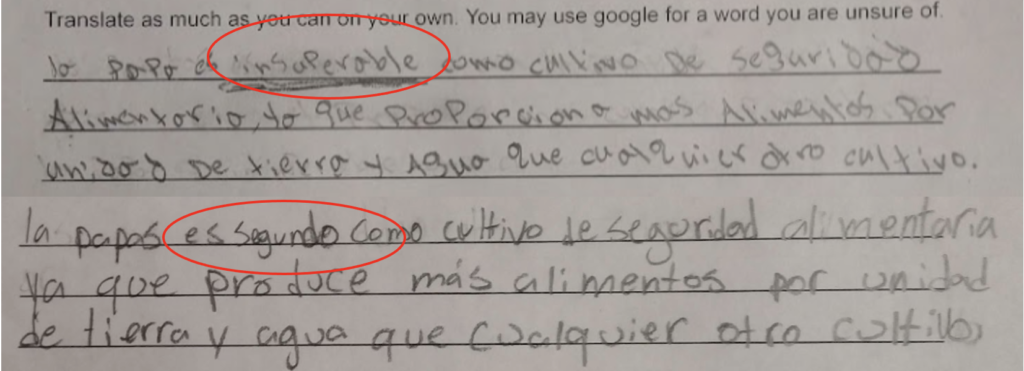 Translate as much as you can on your own. You may use google for a word you are unsure of.
la papa es insuperable como cultivo de seguridad
Alimentario, ya que proporciona mas Alimentos por
unidad De tierra y Agua que cualquier otro cultivo.
la papas es segundo como cultivo de seguridad alimentaria
ya que produce más alimentos por unidad
de tierra y agua que cualquier otro cultivo